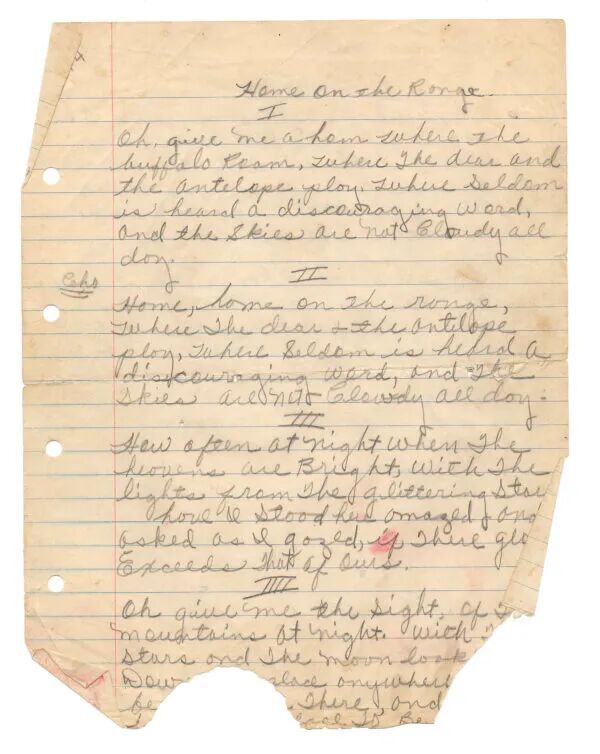 Home on the Range.
I
Oh, give me a hom where the
buffalo Roam, where The dear and
the antelope play, where Seldom
is heard a discouraging word,
and the Skies are not Cloudy all
day.
II
Cho
Home, home on The range,
where The dear & the antelope
play, where Seldom is heard a
discouraging word, and The
Skies are not Cloudy all day.
III
How often at night when The
heavens are Bright, with The
lights from The glittering Star
have I stood here amazed & and
asked as I gazed, if There glo
Exceeds That of Ours.
IIII
Oh give me the Sight, of
mountains at night. with
Stars and The moon look
Dow place anywhere
be There, and
To Be